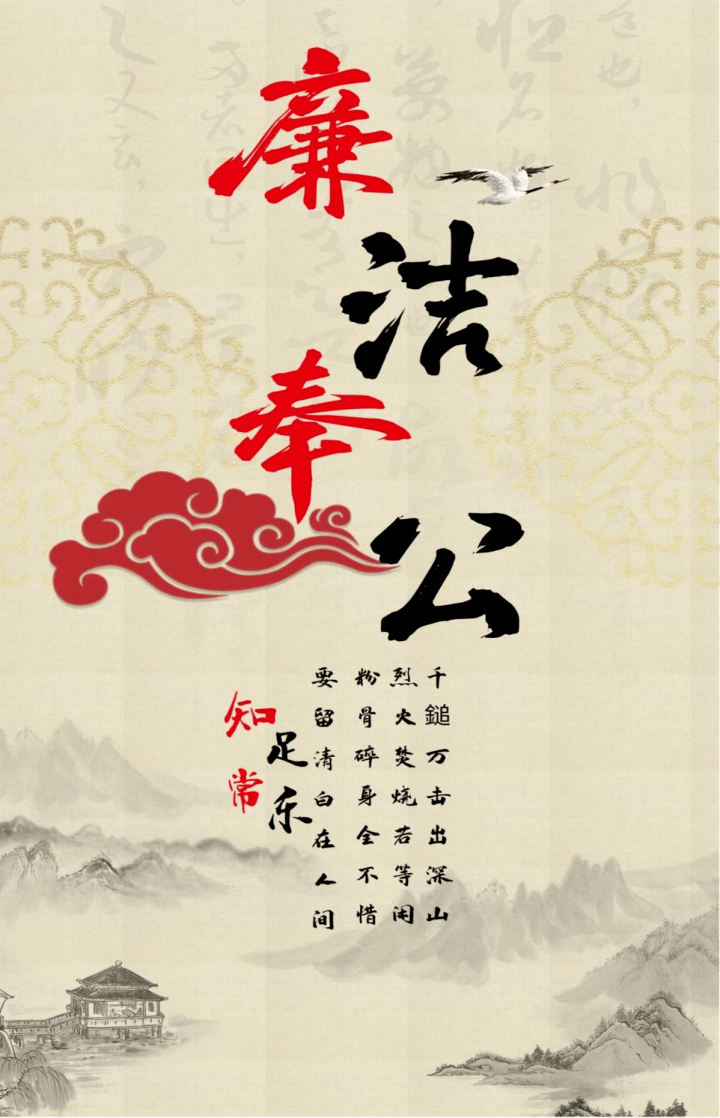 廉洁奉公
千鎚万击出深山
烈火焚烧若等闲
粉骨碎身全不惜
要留清白在人间
知足常乐